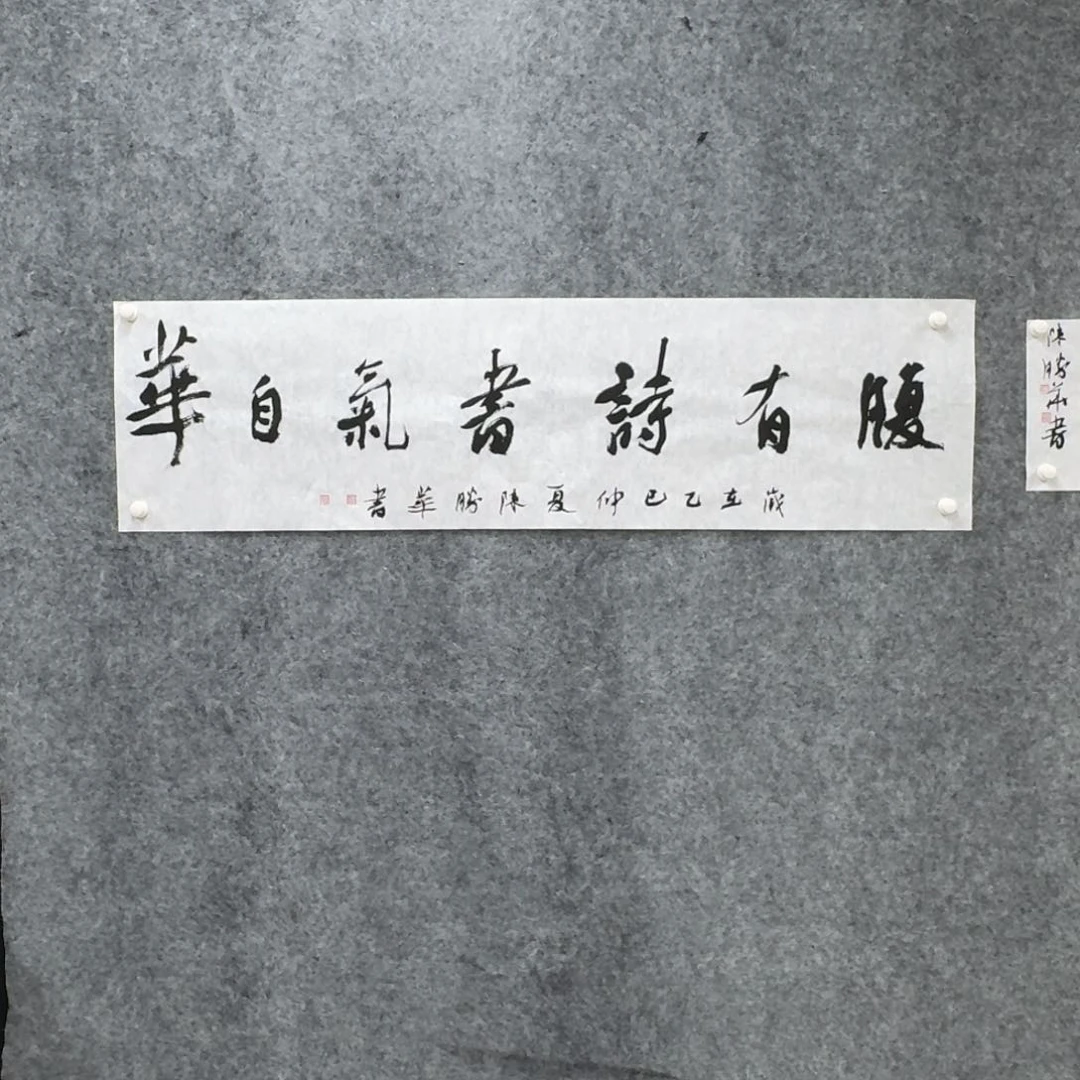 腹有詩書氣自華
歲在乙巳仲夏陳勝華書
陳勝華書